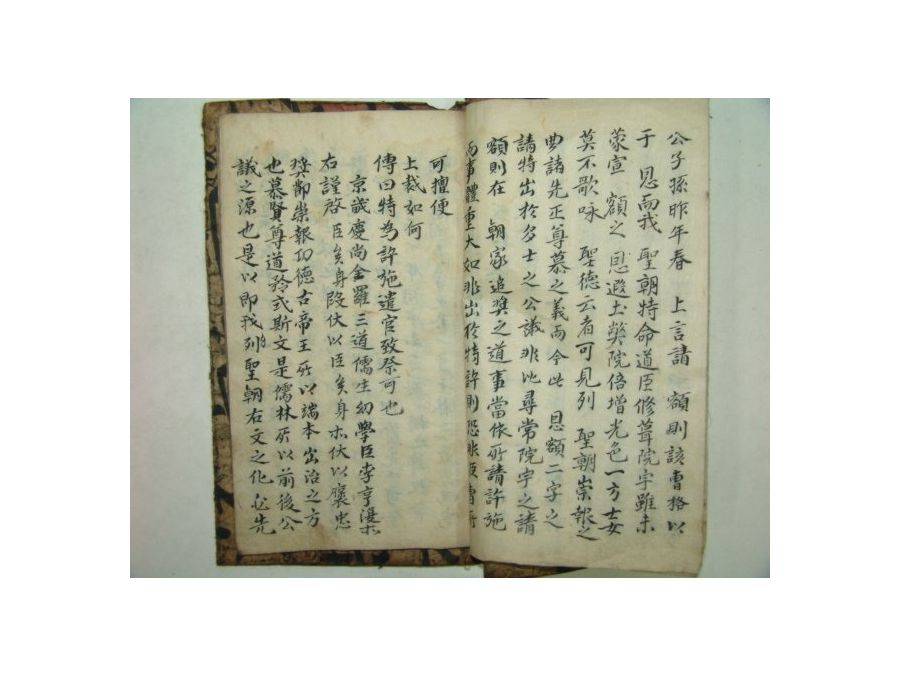 公子孫昨年春 上言請 額則該曹格以
于 恩而我 聖朝特命道臣修葺院宇雖未
蒙宣 額之 恩遐土獘院倍增光色一方士女
莫不歌咏 聖德云者可見列 聖朝崇報之
典諸先正尊慕之義而今此 恩額二字之
請特出於多士之公議非比尋常院宇之請
額則在 朝家追奬之道事當依所請許施
而事體重大如非出於特許則恐非臣曹所
可擅便
上裁如何
傳曰特為許施遣官致祭可也
京畿慶尚全羅三道儒生幼學臣李亨漫等
右謹啓 臣矣身段伏以臣矣身亦伏以褒忠
奬節崇報功德古帝王所以端本出治之方
也慕賢尊道矜式斯文是儒林所以前後公
議之源也是以即我列聖朝右文之化必先